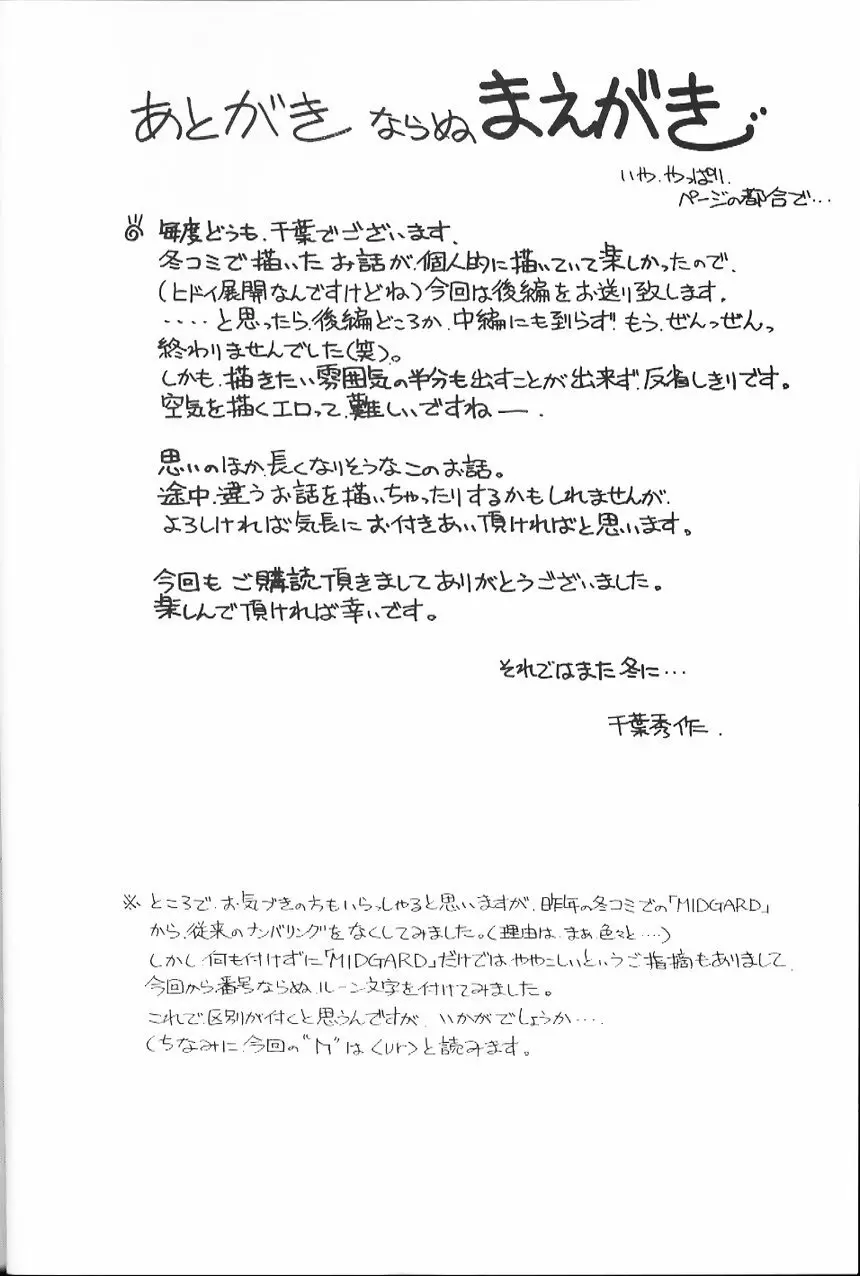 あとがき ならぬ まえがき
いや、やっぱり、
ページの都合で…
毎度どうも、千葉でございます。
冬コミで描いたお話が、個人的に描いていて楽しかったので、
(ヒドイ展開なんですけどね)今回は後編をお送り致します。
‥‥と思ったら、後編どころか、中編にも到らず、もう、ぜんっぜん、
終わりませんでした(笑)。
しかも、描きたい雰囲気の半分も出すことが出来ず、反省しきりです。
空気を描くエロって、難しいですねー。
思いのほか、長くなりそうなこのお話。
途中、違うお話を描いちゃったりするかもしれませんが、
よろしければ気長にお付きあい頂ければと思います。
今回もご購読頂きましてありがとうございました。
楽しんで頂ければ幸いです。
それではまた冬に…
千葉秀作.
※ ところで、お気づきの方もいらっしゃると思いますが、昨年の冬コミでの「MIDGARD」
から、従来のナンバリングをなくしてみました。(理由は、まぁ、色々と‥‥)
しかし、何も付けずに「MIDGARD」だけでは、ややこしいというご指摘もありまして、
今回から番号ならぬ、ルーン文字を付けてみました。
これで区別が付くと思うんですが、いかがでしょうか‥‥.
(ちなみに、今回の"ᚢ"は<ur>と読みます。